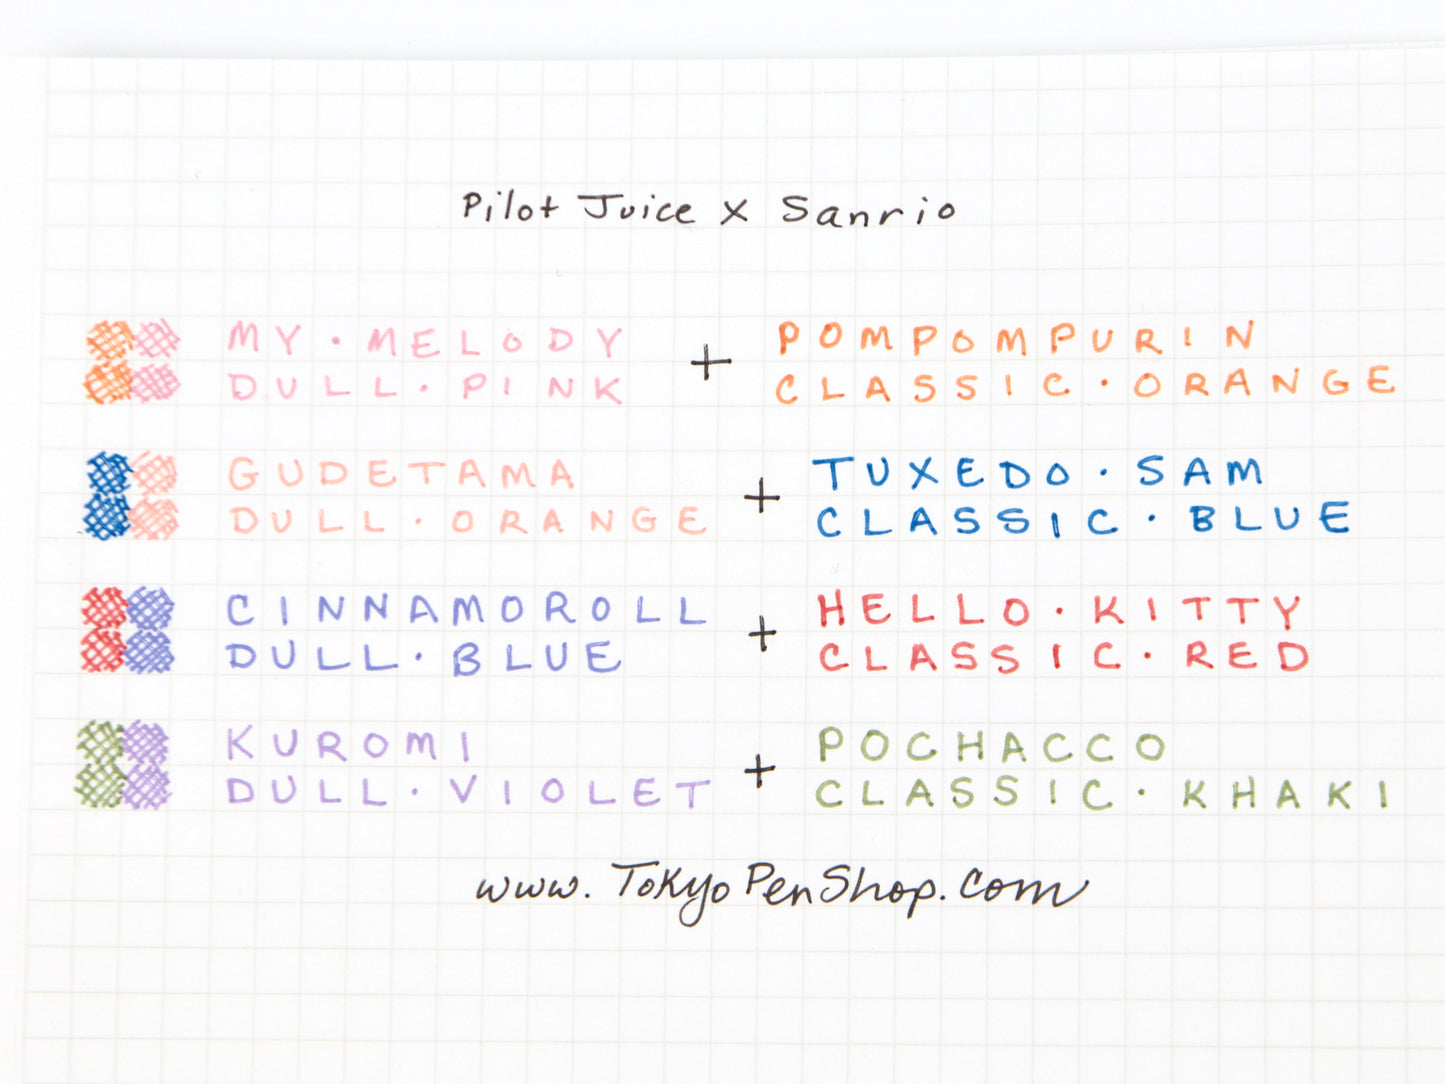 Pilot Juice x Sanrio
MY·MELODY + POMPOMPURIN
DULL·PINK CLASSIC·ORANGE
GUDETAMA + TUXEDO·SAM
DULL·ORANGE CLASSIC·BLUE
CINNAMOROLL + HELLO·KITTY
DULL·BLUE CLASSIC·RED
KUROMI + POCHACCO
DULL·VIOLET CLASSIC·KHAKI
www.TokyoPenShop.com